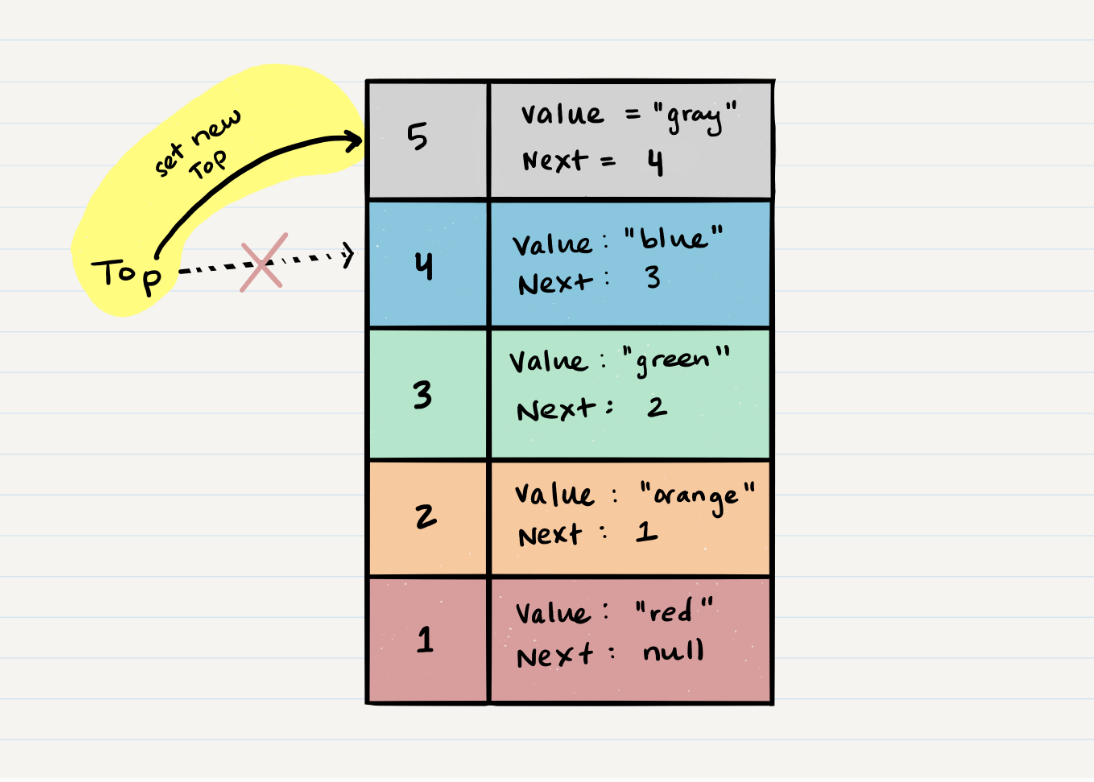 set new
Top
Top
5
Value = "gray"
Next = 4
4
Value : "blue"
Next : 3
3
Value : "green"
Next : 2
2
Value : "orange"
Next : 1
1
Value : "red"
Next : null